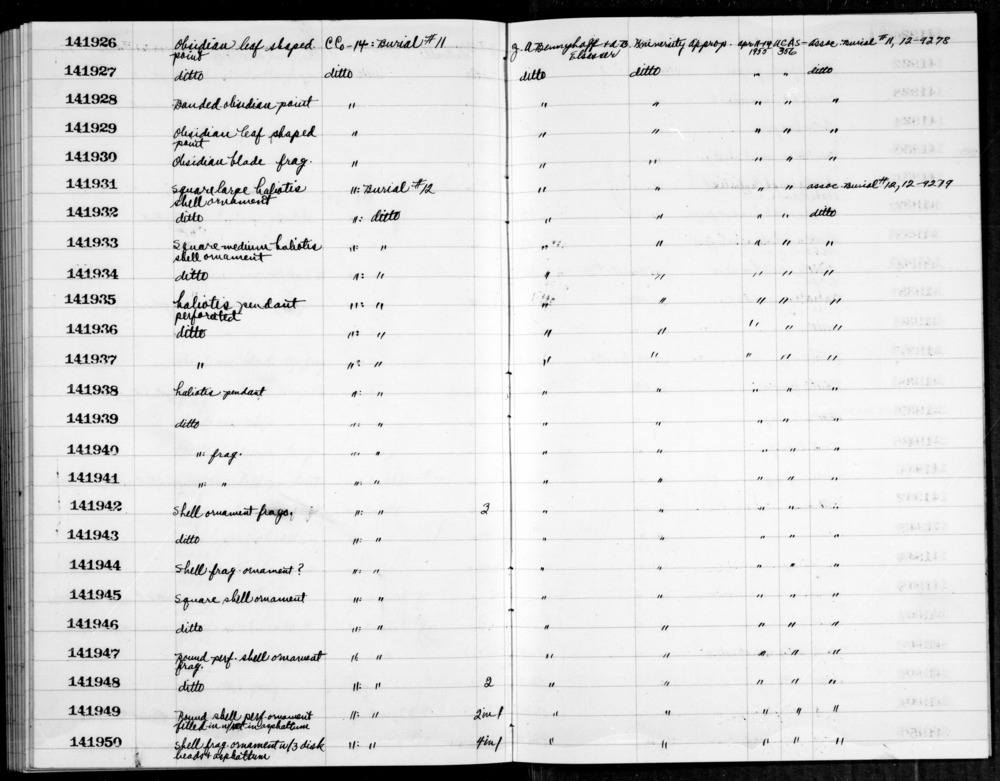 141926 Obsidian leaf shaped point CCo-14: Burial #11 J. A. Bennyhoff + A B Elsasser University Approp. Apr 11-14 1955 UCAS-356 assoc. Burial #11, 12-9278
141927 ditto ditto ditto ditto " " ditto
141928 Banded obsidian point " " " " " "
141929 Obsidian leaf shaped point " " " " " "
141930 Obsidian blade frag. " " " " " "
141931 Square large haliotis shell ornament ": Burial #12 " " " " assoc Burial #12, 12-9279
141932 ditto ": ditto " " " " ditto
141933 Square medium haliotis shell ornament ": " " " " " "
141934 ditto ": " " " " " "
141935 haliotis pendant perforated ": " " " " " "
141936 ditto ": " " " " " "
141937 " ": " " " " " "
141938 haliotis pendant ": " " " " " "
141939 ditto ": " " " " " "
141940 ": frag. ": " " " " " "
141941 ": " ": " " " " " "
141942 Shell ornament frags. ": " 3 " " " " "
141943 ditto ": " " " " " "
141944 Shell frag ornament? ": " " " " " "
141945 Square shell ornament ": " " " " " "
141946 ditto ": " " " " " "
141947 Round perf. shell ornament frag. " " " " " " "
141948 ditto ": " 2 " " " " "
141949 Round shell perf ornament filled in in asphaltum ": " 2 in 1 " " " " "
141950 Shell frag ornament w/3 disk beads + asphaltum ": " 4 in 1 " " " " "